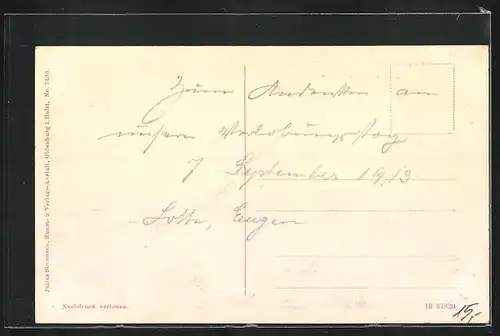 Zum Andenken am
unsern Verlobungstag
7 September 1913
Lotte, Eugen
Julius Simonsen, Kunst- u. Verlags-Anstalt, Oldenburg i. Holst. No. 7435
Nachdruck verboten.
10 67820
15,-